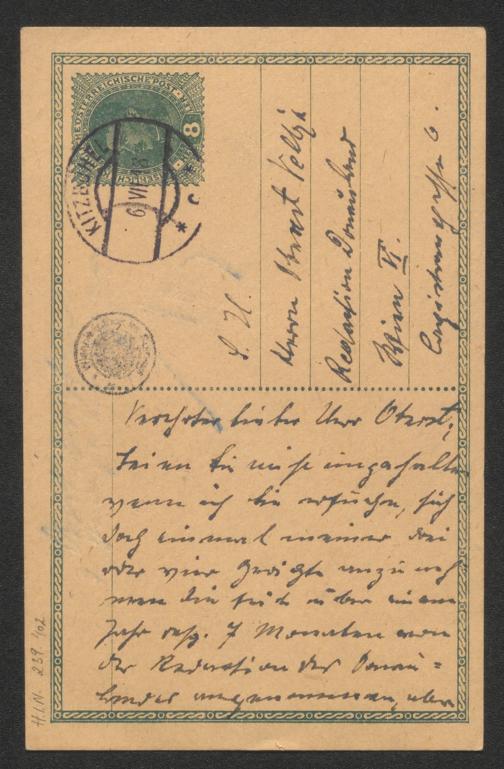 KAISERLICHE KÖNIGLICHE ÖSTERREICHISCHE POST
8
KITZBÜHEL
6 VII 18
S. H.
Herrn Oberst Veltzé
Redaction Donauland
Wien VI.
6.
Verehrter lieber Herr Oberst,
seien Sie mir nicht ungehalten
wenn ich Sie ersuche, sich
doch einmal meiner drei
oder vier Gedichte anzuneh
men die seit über einem
Jahr resp. 7 Monaten von
der Redaction des Donau=
landes angenommen, aber
H.I.N. 239.402